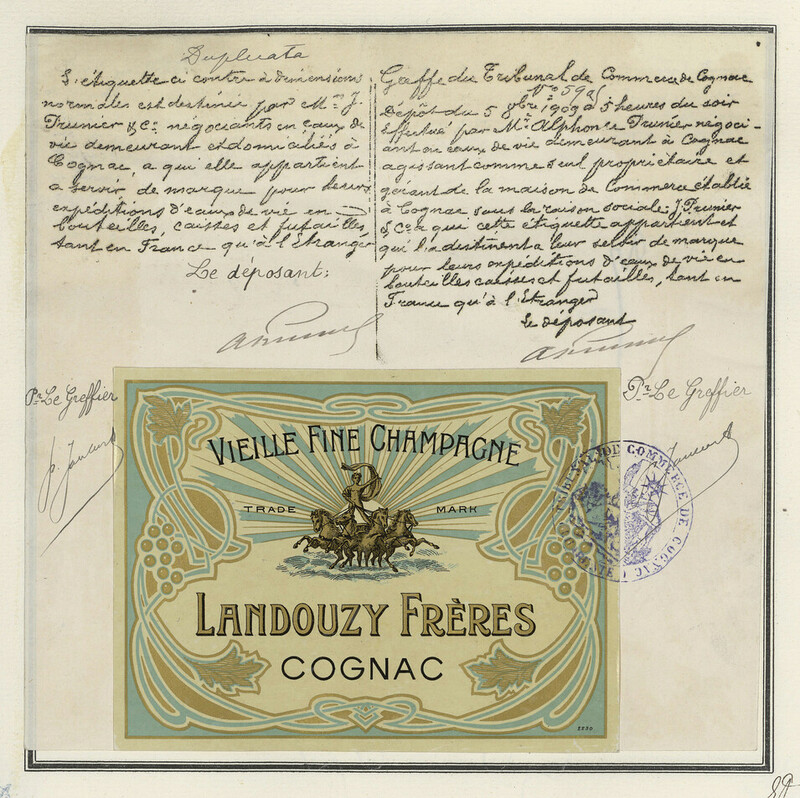 Duplicata
L'étiquette ci contre à dimensions
normales est destinée par Mrs J.
Prunier & Cie négociants en eaux de
vie demeurant et domiciliés à
Cognac, a qui elle appartient
a servir de marque pour leurs
expéditions d'eaux de vie en
bouteilles, caisses et futailles,
tant en France qu'à l'Etranger
Le déposant:
Greffe du Tribunal de Commerce de Cognac
No 59
Dépôt du 5 9bre 1909 à 5 heures du soir
Effectué par Mr Alphonse Prunier négoci-
ant en eaux de vie demeurant à Cognac
agissant comme seul propriétaire et
gérant de la maison de Commerce établie
à Cognac sous la raison sociale: J. Prunier
& Cie a qui cette étiquette appartient et
qui l'a destinent a leur servir de marque
pour leurs expéditions d'eaux de vie en
bouteilles caisses et futailles, tant en
France qu'à l'Etranger
Le déposant
Pr Le Greffier
Pr Le Greffier
VIEILLE FINE CHAMPAGNE
TRADE MARK
LANDOUZY FRÈRES
COGNAC
TRIBUNAL DE COMMERCE DE COGNAC